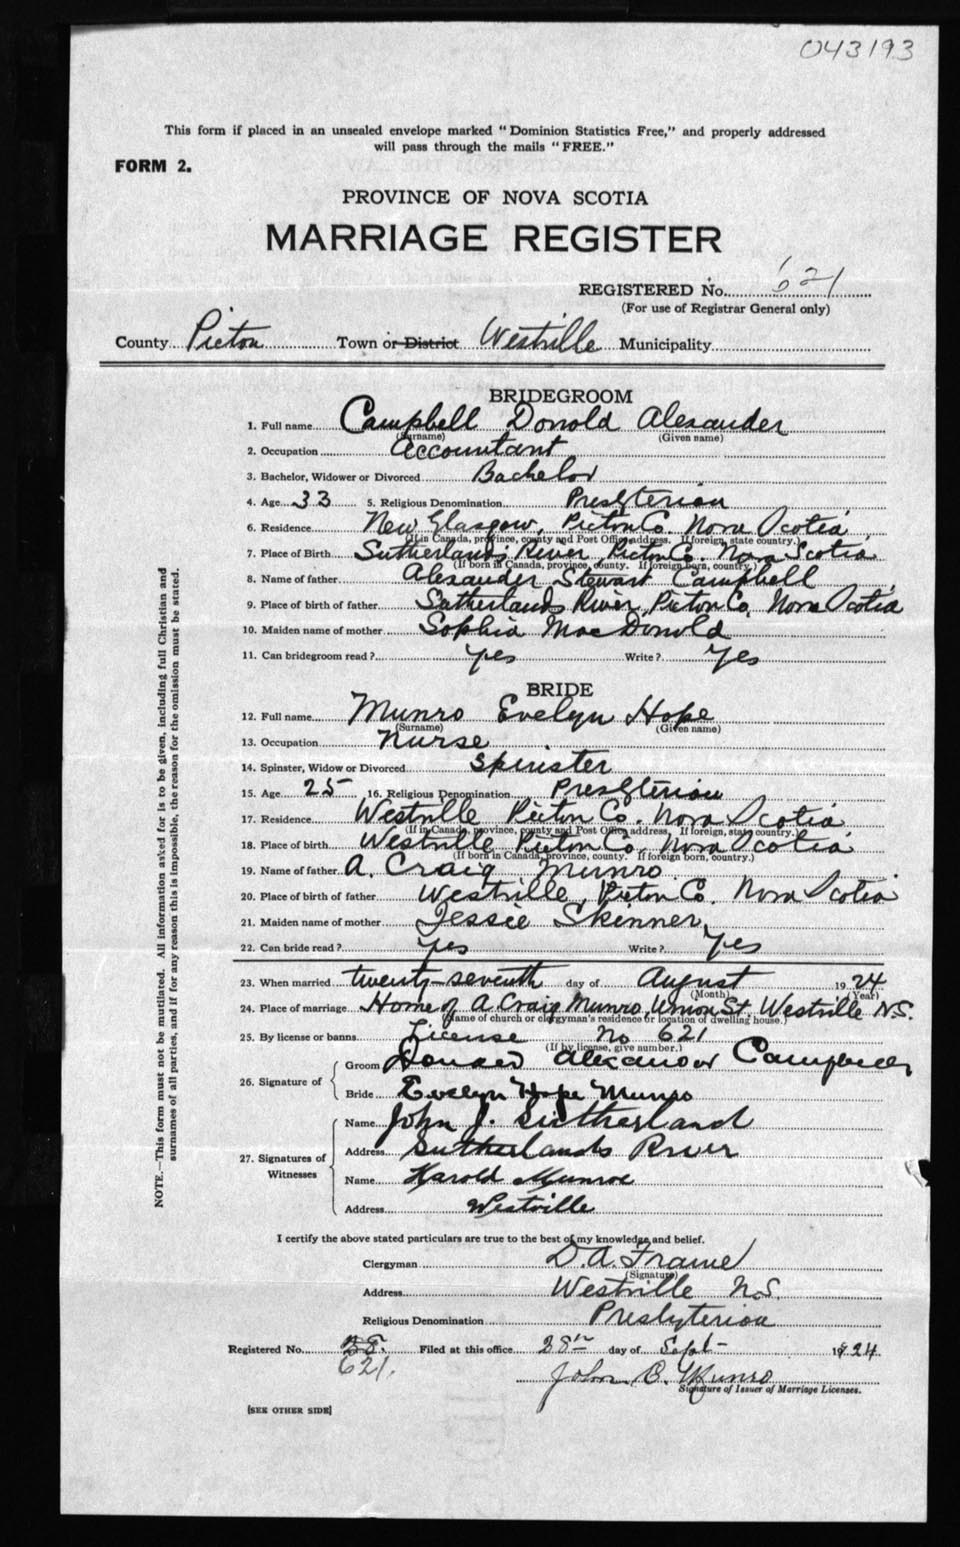 043193
This form if placed in an unsealed envelope marked "Dominion Statistics Free," and properly addressed
will pass through the mails "FREE."
FORM 2.
PROVINCE OF NOVA SCOTIA
MARRIAGE REGISTER
REGISTERED No. 621
(For use of Registrar General only)
County Pictou Town or District Westville Municipality
BRIDEGROOM
1. Full name Campbell Donald Alexander
(Surname) (Given name)
2. Occupation Accountant
3. Bachelor, Widower or Divorced Bachelor
4. Age 33 5. Religious Denomination Presbyterian
6. Residence New Glasgow, Pictou Co. Nova Scotia
(If in Canada, province, county and Post Office address. If foreign, state country.)
7. Place of Birth Sutherlands River, Pictou Co. Nova Scotia
(If born in Canada, province, county. If foreign born, country.)
8. Name of father Alexander Stewart Campbell
9. Place of birth of father Sutherlands River, Pictou Co, Nova Scotia
10. Maiden name of mother Sophia MacDonald
11. Can bridegroom read? yes Write? Yes
BRIDE
12. Full name Munro Evelyn Hope
(Surname) (Given name)
13. Occupation Nurse
14. Spinster, Widow or Divorced Spinster
15. Age 25 16. Religious Denomination Presbyterian
17. Residence Westville Pictou Co. Nova Scotia
(If in Canada, province, county and Post Office address, If foreign, state country.)
18. Place of birth Westville Pictou Co, Nova Scotia
(If born in Canada, province, county. If foreign born, country.)
19. Name of father A. Craig Munro
20. Place of birth of father Westville, Pictou Co. Nova Scotia
21. Maiden name of mother Jessie Skinner
22. Can bride read? Yes Write? Yes
23. When married twenty-seventh day of August 1924
(Month) (Year)
24. Place of marriage Home of A Craig Munro, Union St. Westville N.S.
(Name of church or clergyman's residence or location of dwelling house.)
25. By license or banns License No 621
(If by license, give number.)
26. Signature of
Groom Donald Alexander Campbell
Bride Evelyn Hope Munro
27. Signatures of Witnesses
Name John J. Sutherland
Address Sutherlands River
Name Harold Munroe
Address Westville
I certify the above stated particulars are true to the best of my knowledge and belief.
Clergyman D. A. Frame
(Signature)
Address Westville N.S.
Religious Denomination Presbyterian
Registered No. 28. Filed at this office 28th day of Sept 1924
621.
John C. Munro
Signature of Issuer of Marriage Licenses.
[SEE OTHER SIDE]
NOTE.—This form must not be mutilated. All information asked for is to be given, including full Christian and
surnames of all parties, and if for any reason this is impossible, the reason for the omission must be stated.